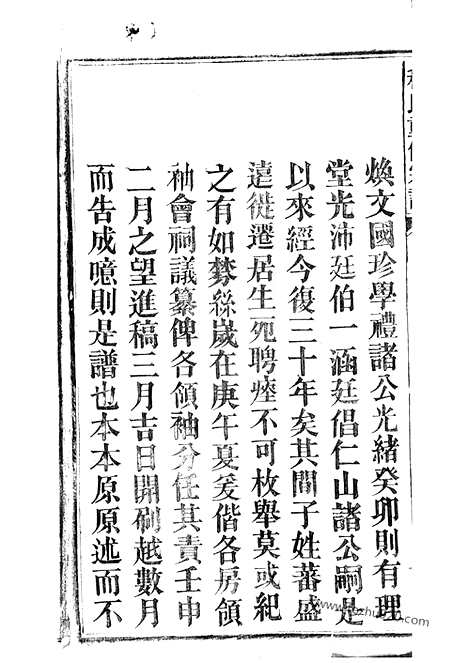 煥文國珍學禮諸公光緒癸卯則有理
堂光沛廷伯一涵廷倡仁山諸公嗣是
以來經今復三十年矣其間子姓蕃盛
遠徙遷居生死聘瘞不可枚舉莫或紀
之有如棼絲歲在庚午夏爰偕各房領
袖會祠議纂俾各領袖分任其責壬申
二月之望進稿三月吉日開刷越數月
而告成噫則是譜也本本原原述而不